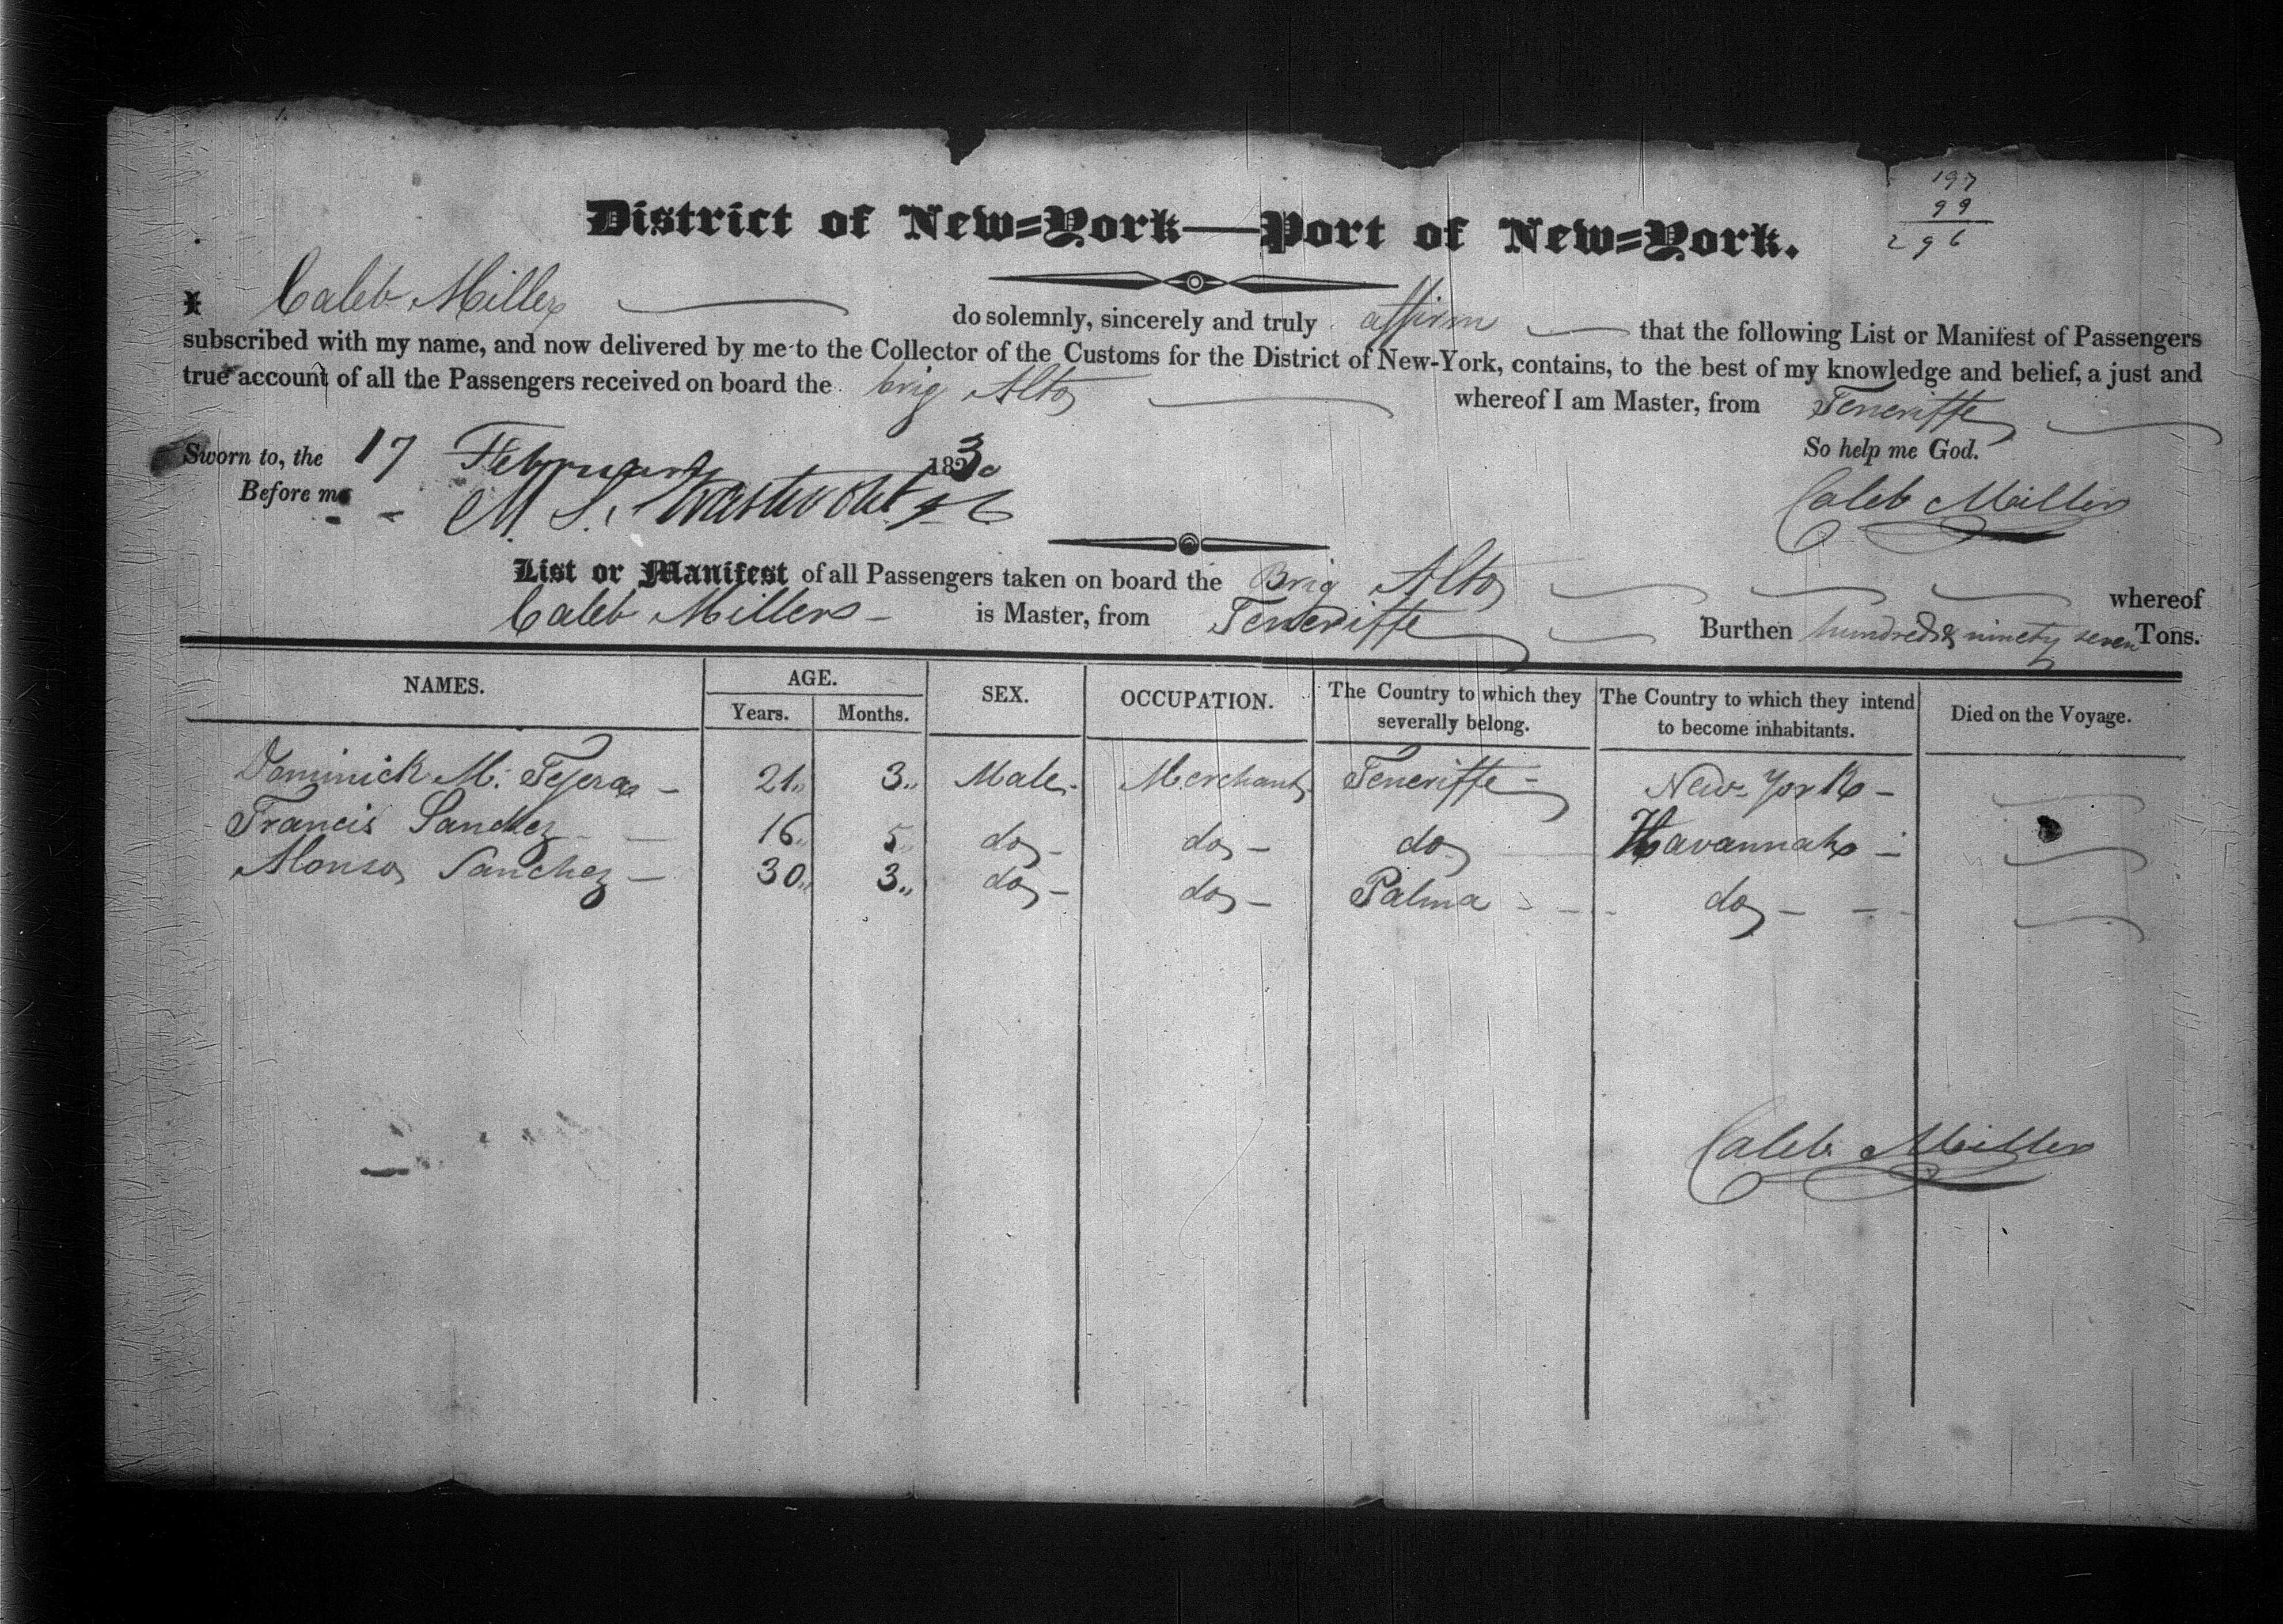 197
99
296
District of New=York—Port of New=York.
I Caleb Miller do solemnly, sincerely and truly affirm that the following List or Manifest of Passengers
subscribed with my name, and now delivered by me to the Collector of the Customs for the District of New-York, contains, to the best of my knowledge and belief, a just and
true account of all the Passengers received on board the brig Alto whereof I am Master, from Teneriffe
So help me God.
Sworn to, the 17 February 1830
Before me M. S.
Caleb Miller
List or Manifest of all Passengers taken on board the Brig Alto whereof
Caleb Miller is Master, from Teneriffe Burthen hundred & ninety seven Tons.
NAMES. AGE. SEX. OCCUPATION. The Country to which they severally belong. The Country to which they intend to become inhabitants. Died on the Voyage.
Years. Months.
Dominick M. Tejera 21 3 Male Merchant Teneriffe New York
Francis Sanchez 16 5 do do do Havannah
Alonso Sanchez 30 3 do do Palma do
Caleb Miller